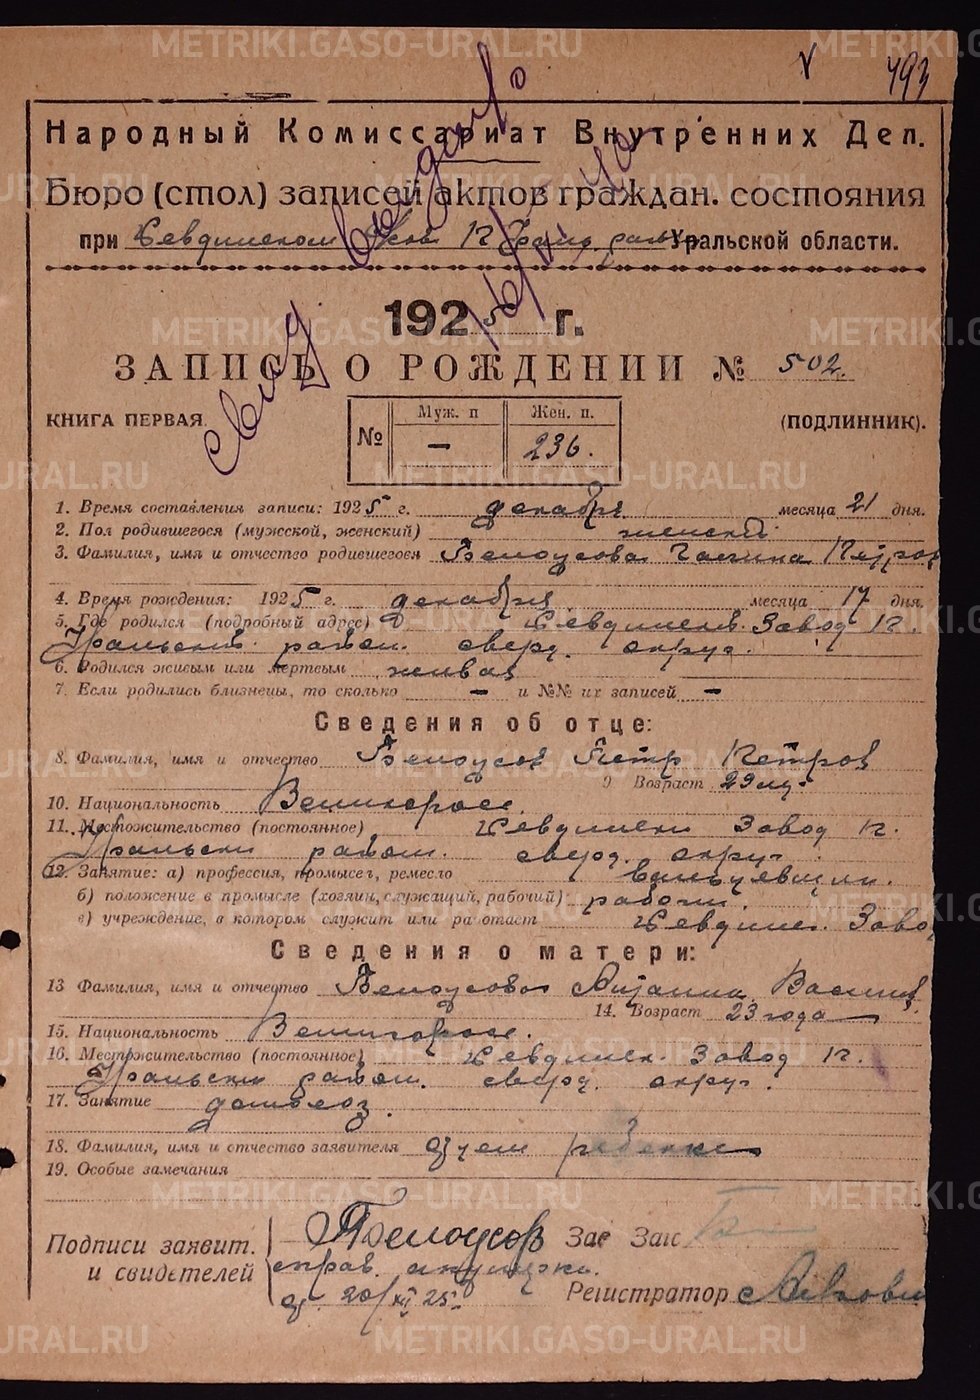 493
Народный Комиссариат Внутренних Дел.
Бюро (стол) записей актов граждан. состояния
при Уральской области.
1925 г.
ЗАПИСЬ О РОЖДЕНИИ № 502.
КНИГА ПЕРВАЯ.
(ПОДЛИННИК).
№ Муж. п Жен. п.
— 236.
1. Время составления записи: 1925 г. декабря месяца 21 дня.
2. Пол родившегося (мужсской, женский) женский
3. Фамилия, имя и отчество родившегося Белоусова
4. Время рождения: 1925 г. декабря месяца 17 дня.
5. Где родился (подробный адрес) Завод
Уральский район. сверд. округ.
6. Родился живым или мертвым живая
7. Если родились близнецы, то сколько — и №№ их записей —
Сведения об отце:
8. Фамилия, имя и отчество Белоусов Петр Петров
9 Возраст 29 лет
10. Национальность Великоросс.
11. Местожительство (постоянное) Завод
Уральский район. сверд. округ.
12. Занятие: а) профессия, промысел, ремесло вальцевщик.
б) положение в промысле (хозяин, служащий, рабочий) рабочий.
в) учреждение, в котором служит или работает Заво
Сведения о матери:
13 Фамилия, имя и отчество Белоусова
14. Возраст 23 года
15. Национальность Великоросс.
16. Местржительство (постоянное) Завод
Уральский район. сверд. округ.
17. Занятие домохоз.
18. Фамилия, имя и отчество заявителя отец ребенка
19. Особые замечания
Подписи заявит. Белоусов Зас Загс
и свидетелей справ. акушерки.
от 20/XII 25 Регистратор
METRIKI.GASO-URAL.RU